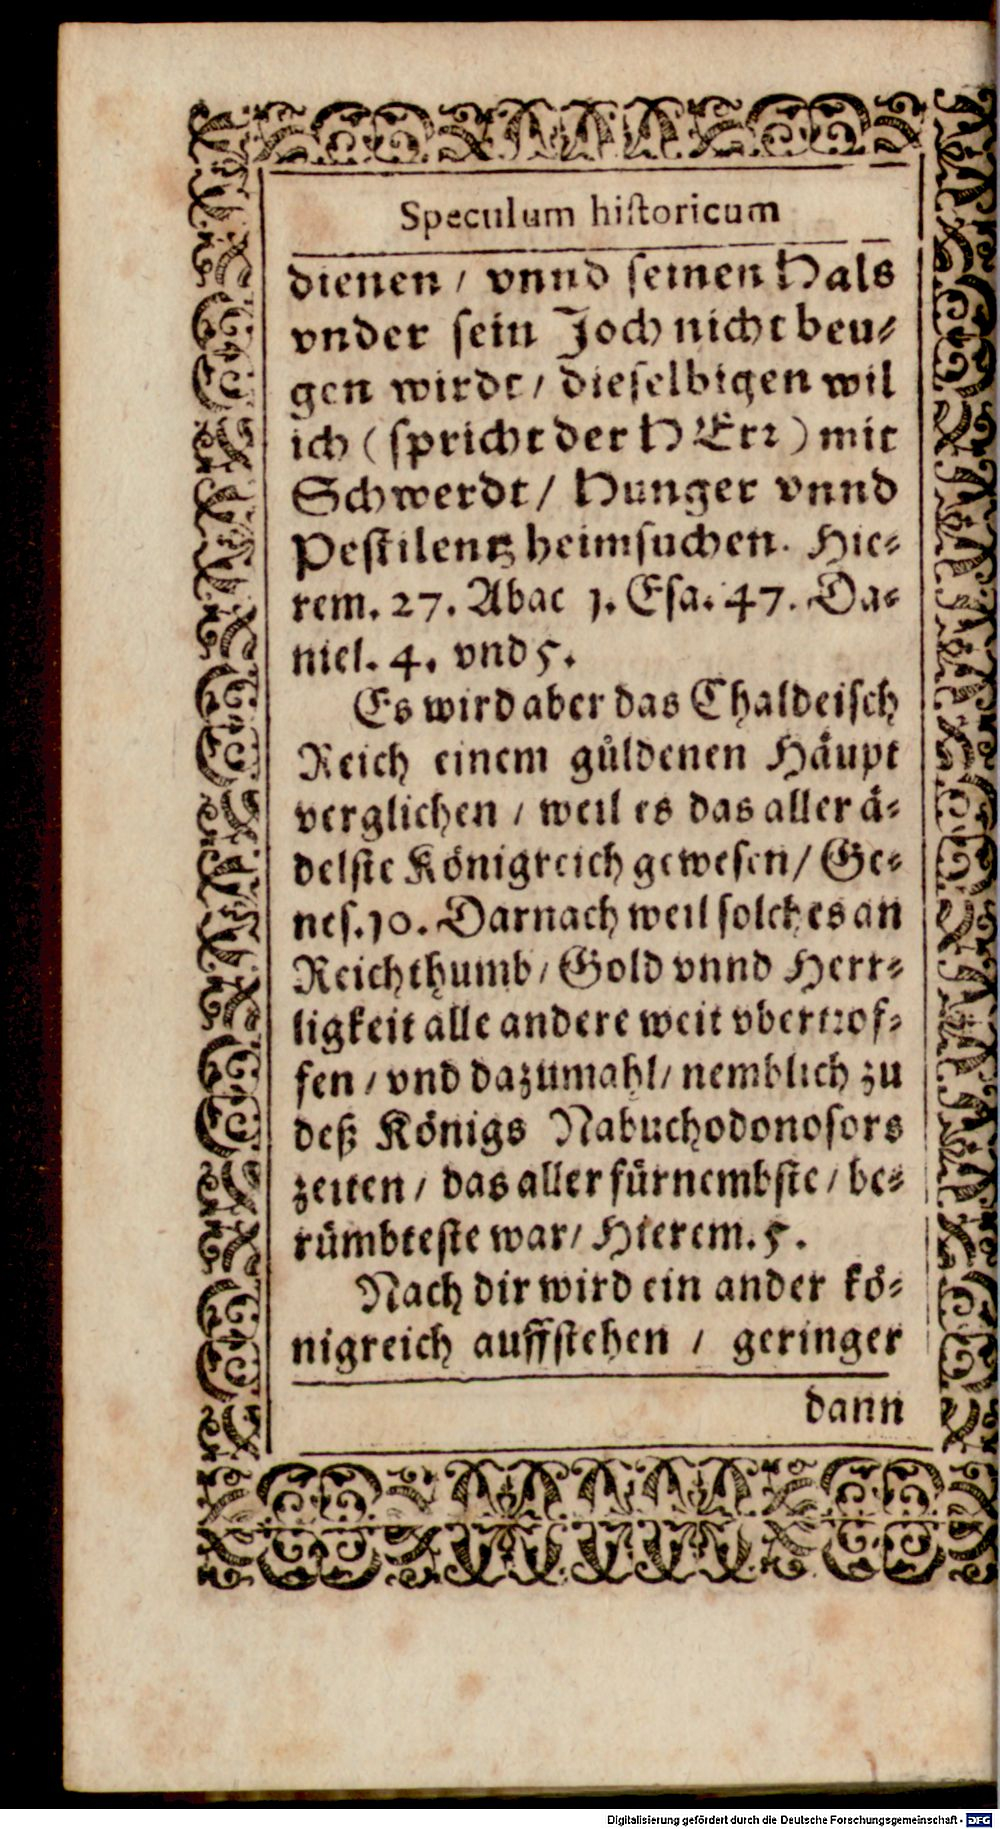 Speculum historicum
dienen / vnnd seinen Hals
vnder sein Joch nicht beu-
gen wirdt / dieselbigen wil
ich ( spricht der HErr ) mit
Schwerdt / Hunger vnnd
Pestilentz heimsuchen. Hie-
rem. 27. Abac 1. Esa. 47. Da-
niel. 4. vnd 5.
Es wird aber das Chaldeisch
Reich einem güldenen Häupt
verglichen / weil es das aller ä-
delste Königreich gewesen / Ge-
nes. 10. Darnach weil solches an
Reichthumb / Gold vnnd Herr-
ligkeit alle andere weit vbertrof-
fen / vnd dazumahl / nemblich zu
deß Königs Nabuchodonosors
zeiten / das aller fürnembste / be-
rümbteste war / Hierem. 5.
Nach dir wird ein ander kö-
nigreich auffstehen / geringer
dann
Digitalisierung gefördert durch die Deutsche Forschungsgemeinschaft - DFG